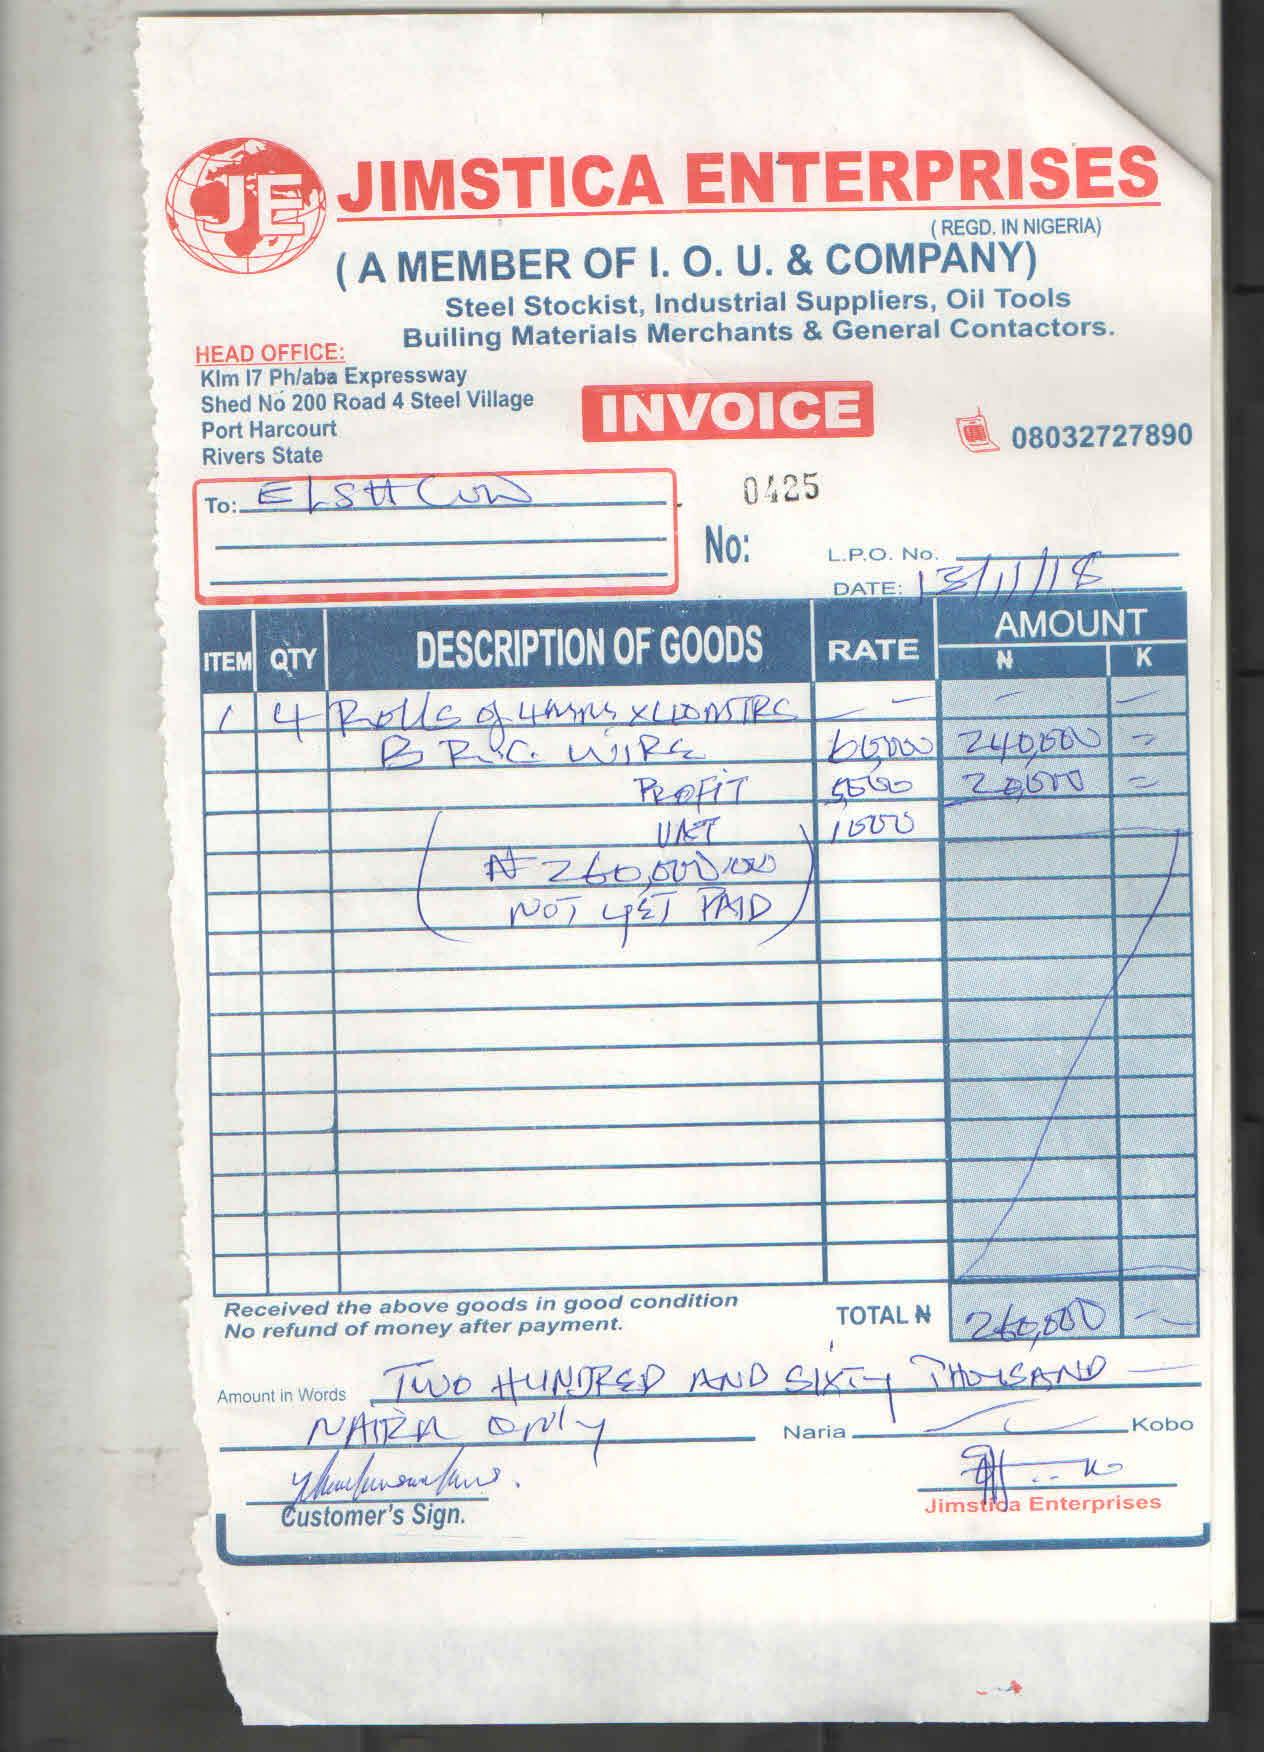 JE JIMSTICA ENTERPRISES
( REGD. IN NIGERIA)
( A MEMBER OF I. O. U. & COMPANY)
Steel Stockist, Industrial Suppliers, Oil Tools
Builing Materials Merchants & General Contactors.
HEAD OFFICE:
Klm I7 Ph/aba Expressway
Shed No 200 Road 4 Steel Village
Port Harcourt
Rivers State
INVOICE
08032727890
To: ELSHCON
0425
No:
L.P.O. No.
DATE: 13/11/18
ITEM QTY DESCRIPTION OF GOODS RATE AMOUNT
₦ K
1 4 Rolls of 4mms x 40MTRS — — — —
B R.C. WIRE 60,000 240,000 =
PROFIT 5,000 20,000 =
VAT 1000
( ₦ 260,000.00
NOT YET PAID )
Received the above goods in good condition
No refund of money after payment.
TOTAL ₦ 260,000 —
Amount in Words TWO HUNDRED AND SIXTY THOUSAND —
NAIRA ONLY Naria — Kobo
Customer's Sign.
Jimstica Enterprises